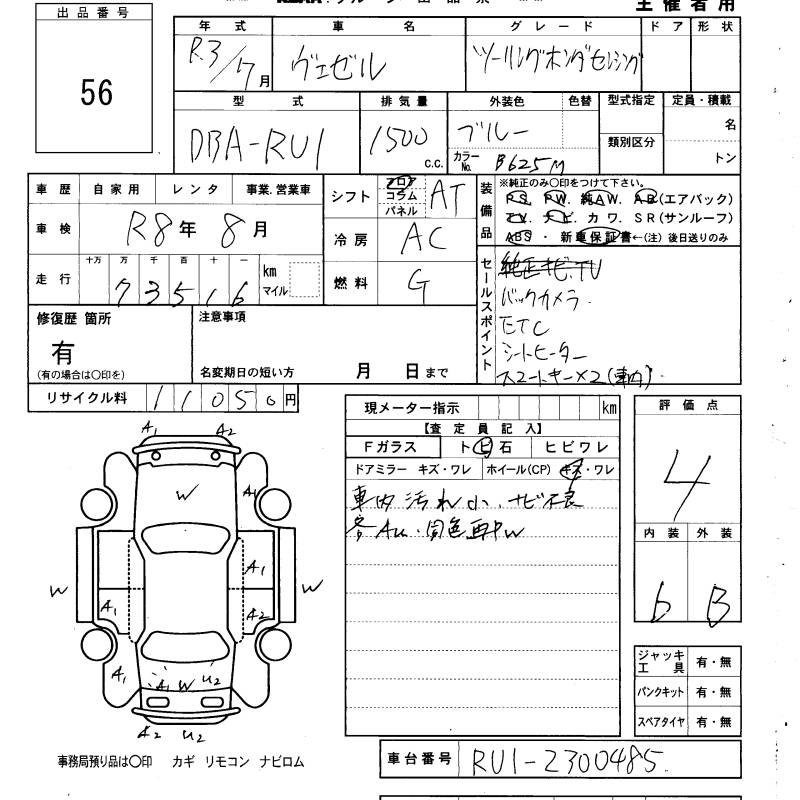 出品番号
56
主催者用
年式 車名 グレード ドア 形状
R3/7月 ヴェゼル ツーリングホンダセンシング
型式 排気量 外装色 色替 型式指定 定員・積載
DBA-RU1 1500 c.c. ブルー 類別区分 名
カラーNo. B625M トン
車歴 自家用 レンタ 事業.営業車
車検 R8年 8月
走行 十万 万 千 百 十 一 km マイル
7 3 5 1 6
シフト フロア コラム パネル AT
冷房 AC
燃料 G
装備品 ※純正のみ○印をつけて下さい。
PS. PW. 純AW. AB(エアバック)
TV. ナビ カワ. SR(サンルーフ)
ABS ・ 新車保証書←(注) 後日送りのみ
セールスポイント
純正ナビ.TV
バックカメラ.
ETC
シートヒーター
スマートキー×2(車内)
修復歴 箇所
有
(有の場合は○印を)
注意事項
名変期日の短い方 月 日まで
リサイクル料 11050円
現メーター指示 km
【査定員記入】
Fガラス トビ石 ヒビワレ
ドアミラー キズ・ワレ ホイール(CP) キズ・ワレ
車内汚れ小、ナビ不良
各AU.同色再PW
評価点
4
内装 外装
b B
ジャッキ工具 有・無
パンクキット 有・無
スペアタイヤ 有・無
A1 A2
W
A1
W A1 W
A1 A2
A1 A1 W U2
A2 U2
事務局預り品は○印 カギ リモコン ナビロム
車台番号 RU1-2300485